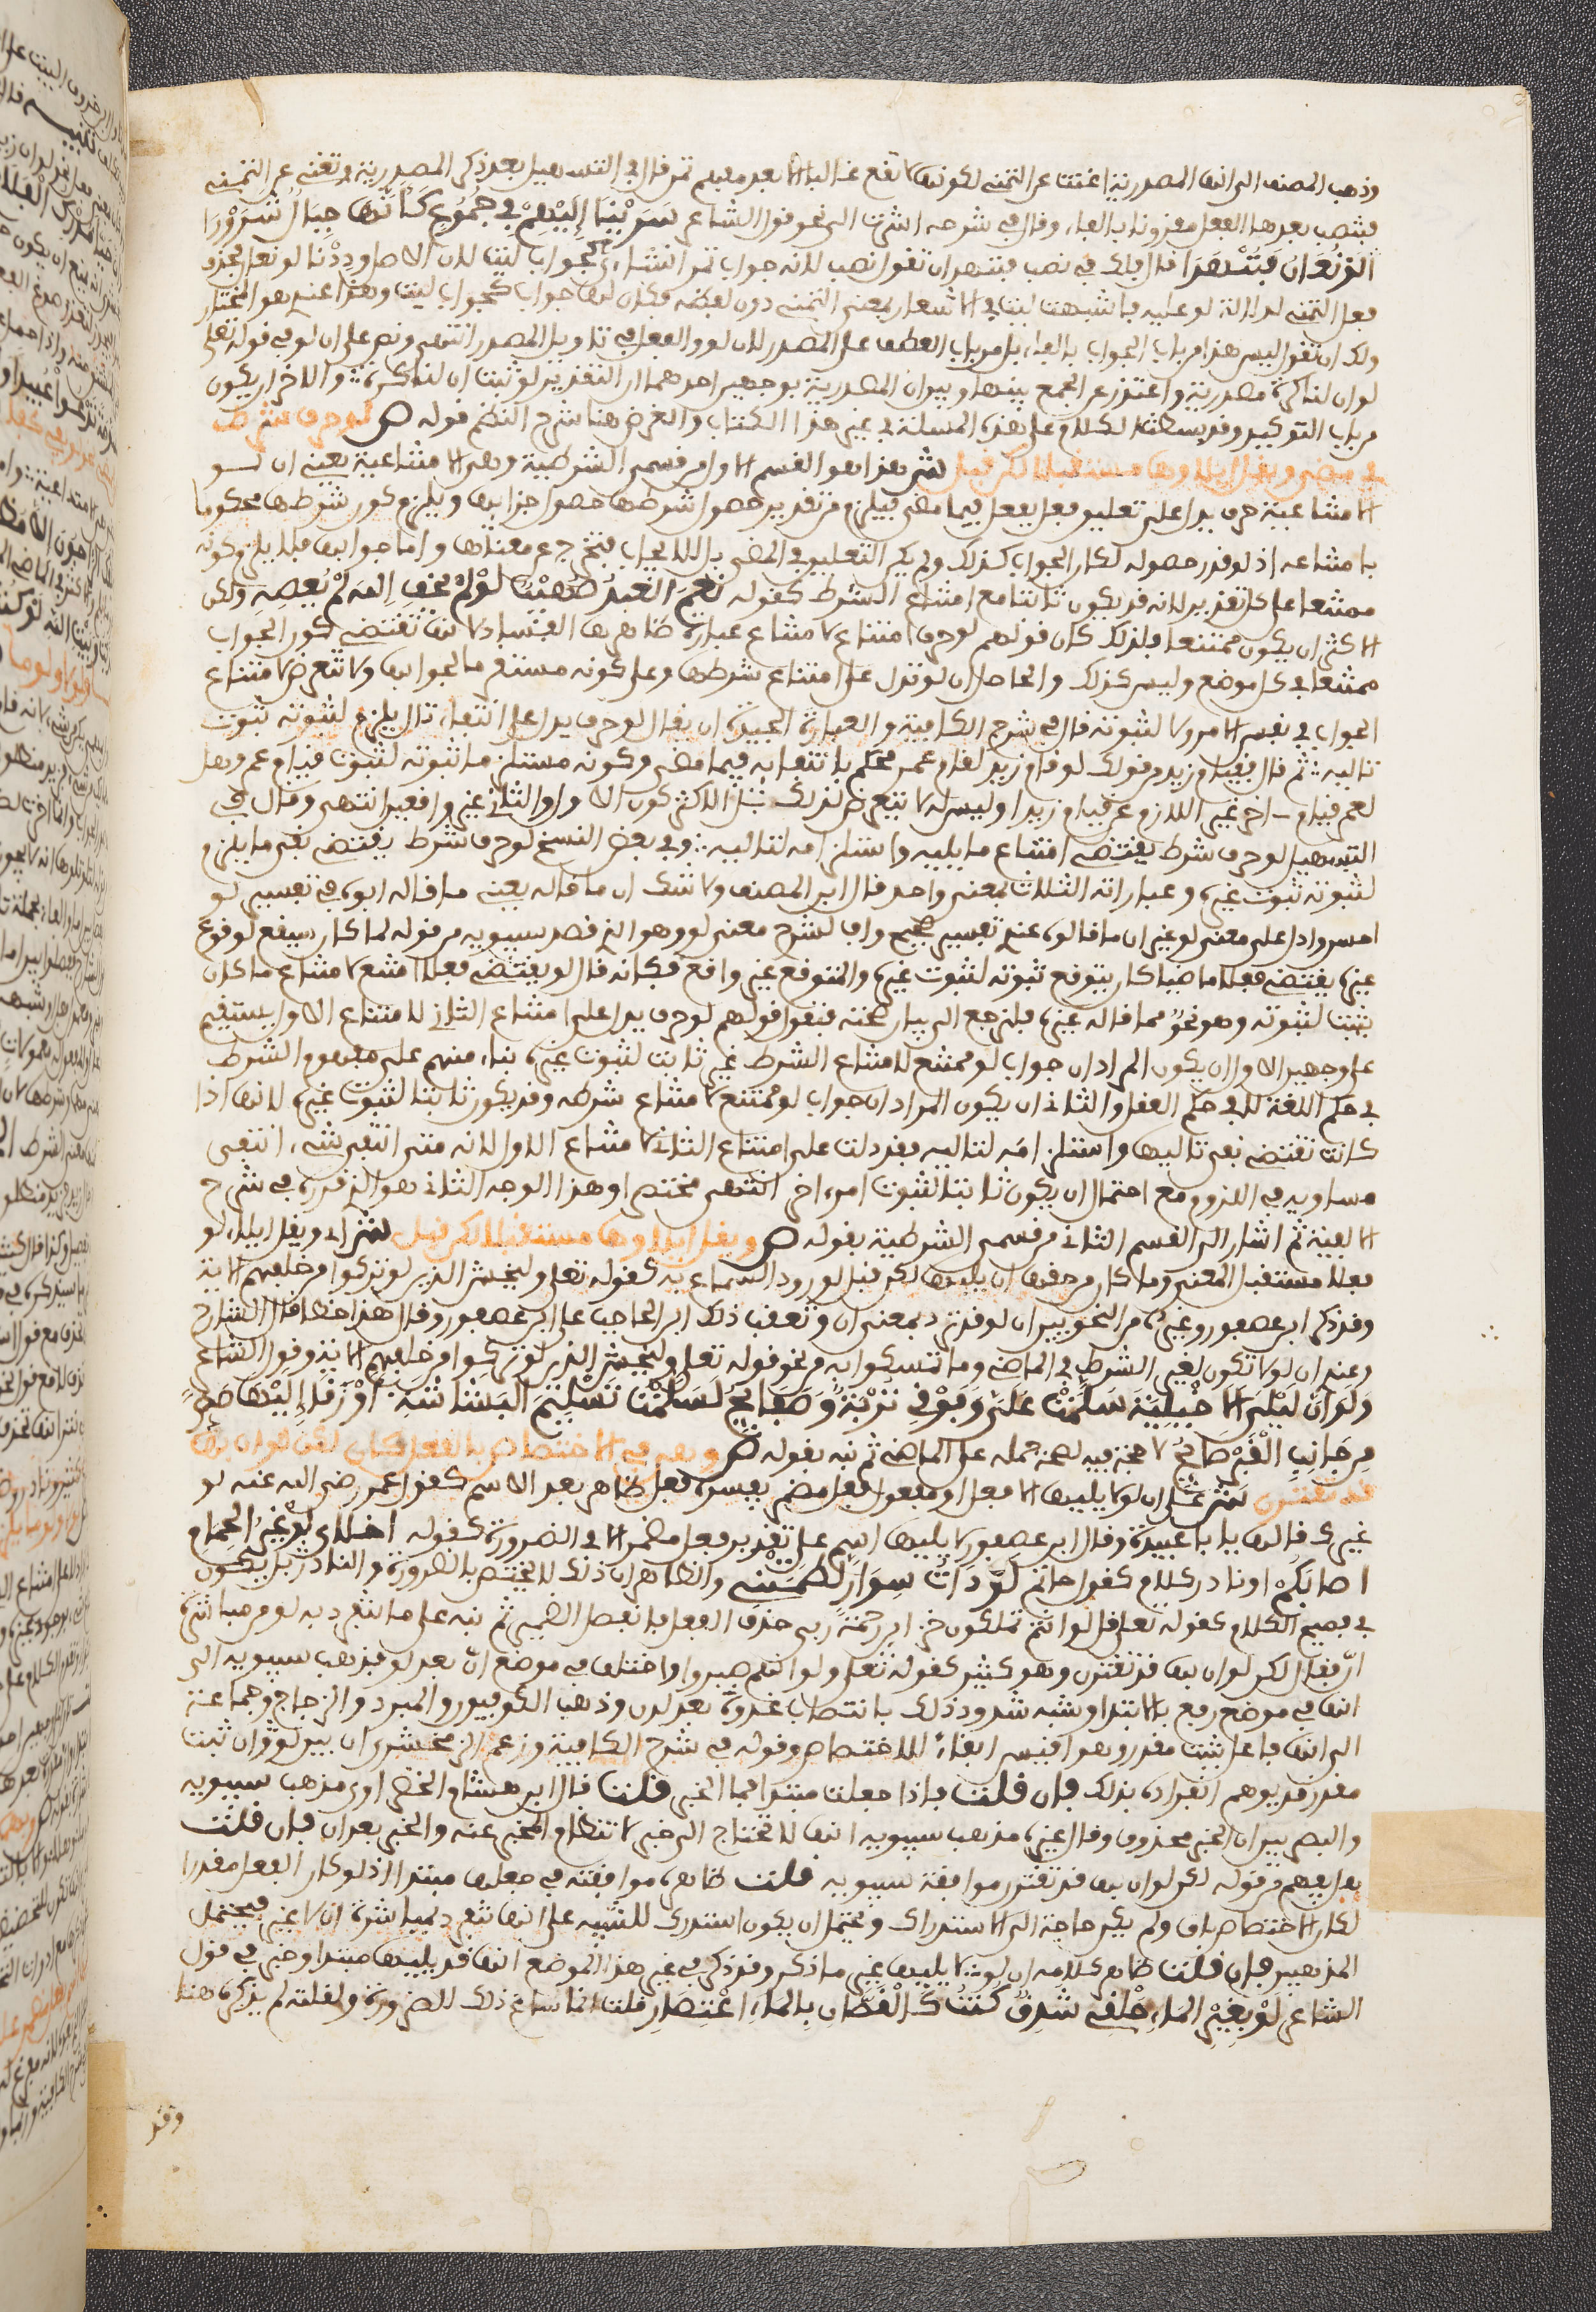 وذهب المصنف الى انها المصدرية اغنت عن التمني لكونها لا تقع غالبا الا بعد مفهم تمن قال في التسهيل بعد ذكر المصدرية وتغني عن التمني
فينصب بعدها الفعل مقرونا بالفاء وقال في شرحه اشرت الى نحو قول الشاعر سَرَيْنَا إِلَيْهِمْ فِي جُمُوعٍ كَأَنَّهَا جِبَالُ شَرَوْرَا
لَوْ نُعَانُ فَنَنْهَدَا قال فلك في نصب فننهد ان تقول نصب لانه جواب تمن انشاءى كجواب ليت لان الاصل ودِدْنا لو نعان فحذف
فعل التمني لدلالة لو عليه فاشبهت ليت في الاشعار بمعنى التمني دون لفظه فكان لها جواب كجواب ليت وهذا عندي هو المختار
ولك ان تقول ليس هذا من باب الجواب بالفاء بل من باب العطف على المصدر لان لو والفعل في تاويل المصدر انتهى ونص على ان لو في قوله تعلى
لو ان لنا كرة مصدرية واعتذر عن الجمع بينها وبين ان المصدرية بوجهين احدهما ان التقدير لو ثبت ان لنا كرة والاخر ان يكون
من باب التوكيد وقد بسطت الكلام على هذه المسئلة في غير هذا الكتاب والغرض هنا شرح النظم قوله ص لو حرف شرط
في مضي ويقل ايلاوها مستقبلا لكن قبل ش هذا هو القسم الاول من قسمي الشرطية وهي الامتناعية يعني ان لو
الامتناعية حرف يدل على تعليق فعل بفعل فيما مضى فيلزم من تقدير حصول شرطها حصول جزايها ويلزم كون شرطها محكوما
بامتناعه اذ لو قدر حصوله لكان الجواب كذلك ولم يكن التعليق في المضي بل للايجاب فتخرج عن معناها واما جوابها فلا يلزم كونه
ممتنعا على كل تقدير لانه قد يكون ثابتا مع امتناع الشرط كقوله نِعْمَ العَبْدُ صُهَيْبٌ لَوْ لَمْ يَخَفِ اللهَ لَمْ يَعْصِهِ ولكن
الاكثر ان يكون ممتنعا فلذلك كان قولهم لو حرف امتناع لامتناع عبارة ظاهرها الفساد لانها تقتضي كون الجواب
ممتنعا في كل موضع وليس كذلك والحاصل ان لو تدل على امتناع شرطها وعلى كونه مستلزما لجوابها ولا تتعرض لامتناع
الجواب في نفس الامر ولا لثبوته قال في شرح الكافية والعبارة الجيدة ان يقال لو حرف يدل على انتفاء تال يلزم لثبوته ثبوت
تاليه ثم قال فقيام زيد من قولك لو قام زيد لقام عمرو محكوم بانتفايه فيما مضى وكونه مستلزما ثبوته لثبوت قيام عمرو وهل
لعمرو قيام اخر غير اللازم عن قيام زيد او ليس له لا يتعرض لذلك بل الاكثر كون الاول والثاني غير واقعين انتهى وقال في
التسهيل لو حرف شرط يقتضي امتناع ما يليه واستلزامه لتاليه وفي بعض النسخ لو حرف شرط يقتضي نفي ما يلزم
لثبوته ثبوت غيره وعباراته الثلاث بمعنى واحد قال ابن المصنف ولا شك ان ما قاله يعني ما قاله ابوه في تفسير لو
احسن وادل على معنى لو غير ان ما قالوه عندي تفسير صحيح واف لشرح معنى لو وهو الذي قصد سيبويه من قوله لما كان سيقع لوقوع
غيره يقتضي فعلا ماضيا كان يتوقع ثبوته لثبوت غيره والمتوقع غير واقع فكانه قال لو يقتضي فعلا امتنع لامتناع ما كان
يثبت لثبوته وهو نحو مما قاله غيره فلنرجع الى بيان صحته فنقول قولهم لو حرف يدل على امتناع الثاني لامتناع الاول يستقيم
على وجهين الاول ان يكون المراد ان جواب لو ممتنع لامتناع الشرط غير ثابت لثبوت غيره بناء منهم على مفهوم الشرط
في حكم اللغة لا في حكم العقل والثاني ان يكون المراد ان جواب لو ممتنع لامتناع شرطه وقد يكون ثابتا لثبوت غيره لانها اذا
كانت تقتضي نفي تاليها واستلزامه لتاليه فقد دلت على امتناع الثاني لامتناع الاول لانه متى انتفى شيء انتفى
مساويه في اللزوم مع احتمال ان يكون ثابتا لثبوت امر اخر انتهى مختصرا وهذا الوجه الثاني هو الذي قرره في شرح
الالفية ثم اشار الى القسم الثاني من قسمي الشرطية بقوله ص ويقل ايلاوها مستقبلا لكن قبل ش اي ويقل ايلاء لو
فعلا مستقبل المعنى وما كان من حقها ان يليها لكن قبل لورود السماع به كقوله تعلى وليخش الذين لو تركوا من خلفهم الاية
وقد ذكر ابن عصفور وغيره من النحويين ان لو قد ترد بمعنى ان وتعقب ذلك ابن الحاجب على ابن عصفور وقال هذا خطا قال الشارح
وعندي ان لو لا تكون لغير الشرط في الماضي وما تمسكوا به من نحو قوله تعلى وليخش الذين لو تركوا من خلفهم الاية وقول الشاعر
وَلَوَ أنَّ لَيْلَى الاخْيَلِيَّةَ سَلَّمَتْ عَلَيَّ وَفَوْقِي تُرْبَةٌ وَصَفَايِحُ لَسَلَّمْتُ تَسْلِيمَ البَشَاشَةِ أَوْ زَقَا إِلَيْهَا صَدًى
مِنْ جَانِبِ الْقَبْرِ صَايِحُ لا حجة فيه لصحة حمله على الماضي ثم نبه بقوله ص وهي في الاختصاص بالفعل كان لكن لو ان بها
قد تقترن ش يعني ان لو لا يليها الا فعل او معمول فعل مضمر يفسره فعل ظاهر بعد الاسم كقول عمر رضي الله عنه لو
غيرك قالها يا با عبيدة وقال ابن عصفور لا يليها اسم على تقدير فعل مضمر الا في الضرورة كقوله اخلاي لَوْ غَيْرُ الحِمَام
اصَابَكُمْ او نادر كلام كقول حاتم لَوْ ذَاتُ سِوَارٍ لَطَمَتْنِي والظاهر ان ذلك لا يختص بالضرورة والنادر بل يكون
في فصيح الكلام كقوله تعلى قل لو انتم تملكون خزاين رحمة ربي حذف الفعل فانفصل الضمير ثم نبه على ما تنفرد به لو من مباشرة
انّ فقال لكن لو ان بها قد تقترن وهو كثير كقوله تعلى ولو انهم صبروا واختلف في موضع انّ بعد لو فذهب سيبويه الى
انها في موضع رفع بالابتدا وشبه شذوذ ذلك بانتصاب غدوة بعد لدن وذهب الكوفيون والمبرد والزجاج وجماعة
الى انها فاعل ثبت مقدر وهو اقيس ابقاءً للاختصاص وقوله في شرح الكافية وزعم الزمخشري ان بين لو وان ثبت
مقدر قد يوهم انفراده بذلك فان قلت فاذا جعلت مبتدا فما الخبر قلت قال ابن هشام الخضراوي مذهب سيبويه
والبصريين ان الخبر محذوف وقال غيره مذهب سيبويه انها لا تحتاج الى خبر لانتظام المخبر عنه والخبر بعد ان فان قلت
هل يفهم من قوله لكن لو ان بها قد تقترن موافقة سيبويه قلت ظاهره موافقته في جعلها مبتدا اذ لو كان الفعل مقدرا
لكان الاختصاص باق ولم يكن حاجة الى الاستدراك ويحتمل ان يكون استدرك للتنبيه على انها تنفرد بمباشرة ان لا غير فيحتمل
المذهبين فان قلت ظاهر كلامه ان لو لا يليها غير ما ذكر وقد ذكر في غير هذا الموضع انها قد يليها مبتدا وخبر في قول
الشاعر لَوْ بِغَيْرِ المَاءِ حَلْقِي شَرِقٌ كُنْتُ كَالْغَصَّانِ بِالمَاءِ اعْتِصَارِي قلت انما ساغ ذلك للضرورة ولقلته لم يذكره هنا
وقد